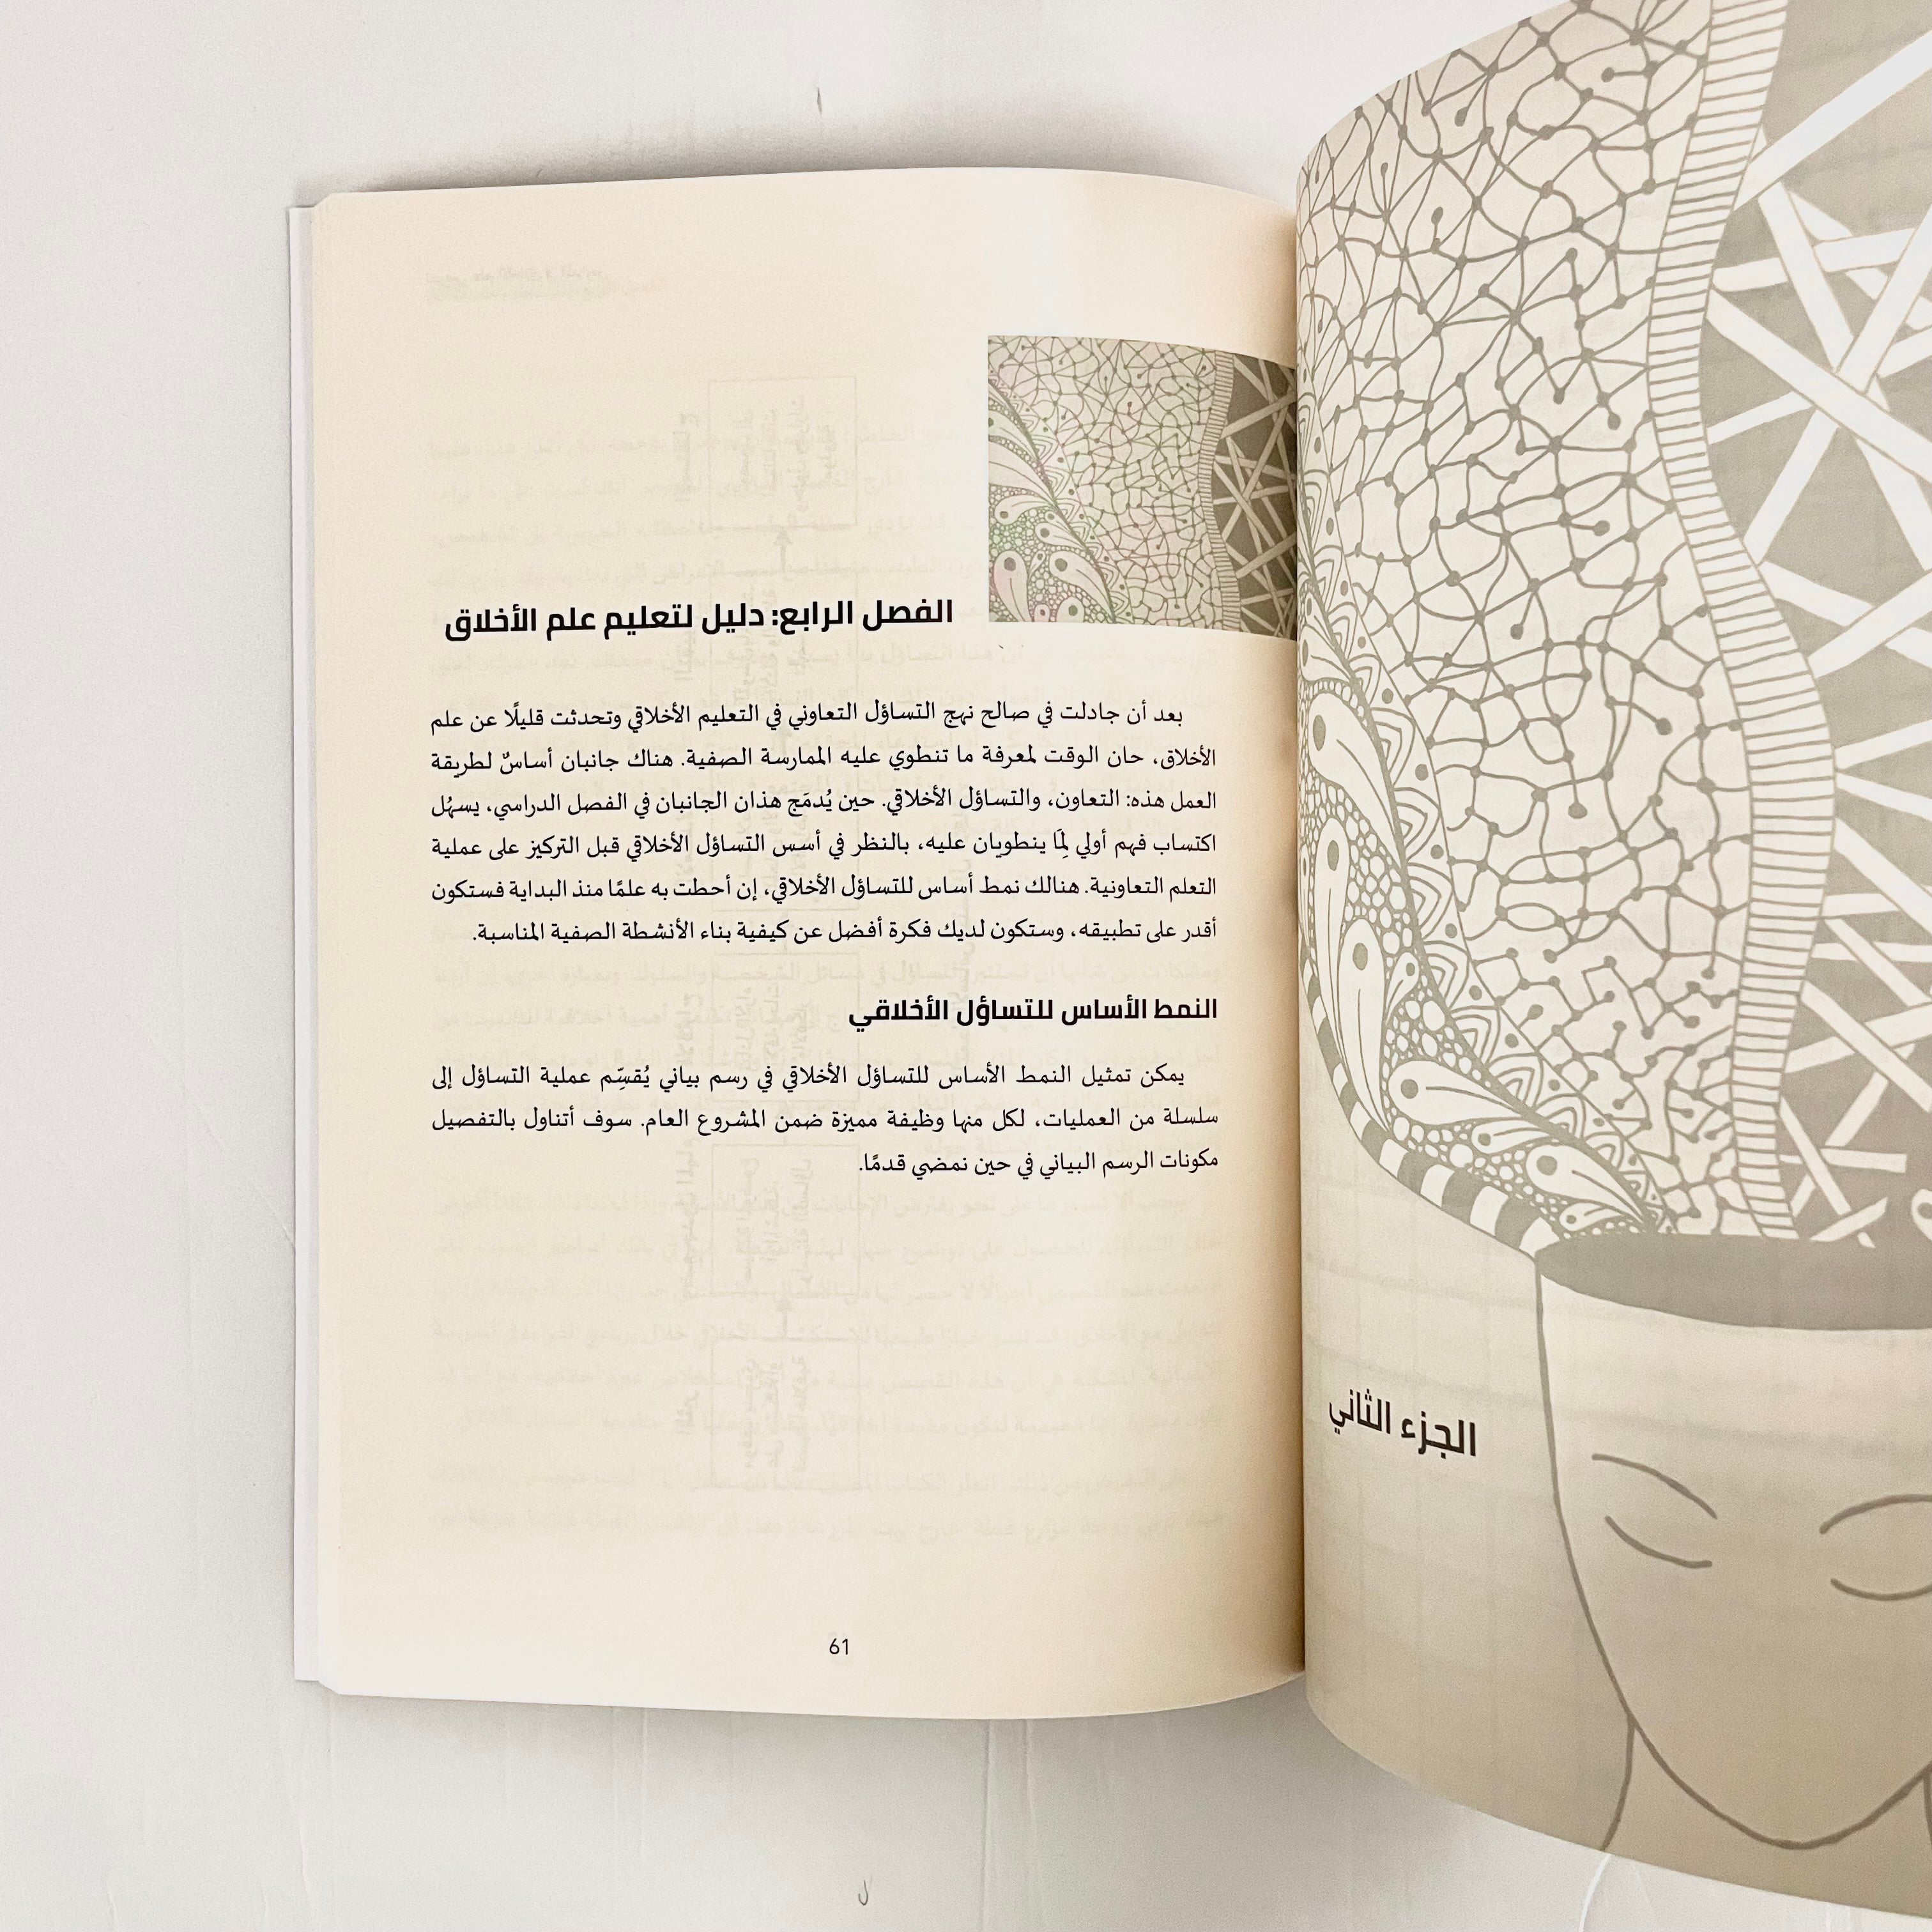 الجزء الثاني
الفصل الرابع: دليل لتعليم علم الأخلاق
بعد أن جادلت في صالح نهج التساؤل التعاوني في التعليم الأخلاقي وتحدثت قليلًا عن علم
الأخلاق، حان الوقت لمعرفة ما تنطوي عليه الممارسة الصفية. هناك جانبان أساسٌ لطريقة
العمل هذه: التعاون، والتساؤل الأخلاقي. حين يُدمَج هذان الجانبان في الفصل الدراسي، يسهُل
اكتساب فهم أولي لِمَا ينطويان عليه، بالنظر في أسس التساؤل الأخلاقي قبل التركيز على عملية
التعلم التعاونية. هنالك نمط أساس للتساؤل الأخلاقي، إن أحطت به علمًا منذ البداية فستكون
أقدر على تطبيقه، وستكون لديك فكرة أفضل عن كيفية بناء الأنشطة الصفية المناسبة.
النمط الأساس للتساؤل الأخلاقي
يمكن تمثيل النمط الأساس للتساؤل الأخلاقي في رسم بياني يُقسِّم عملية التساؤل إلى
سلسلة من العمليات، لكل منها وظيفة مميزة ضمن المشروع العام. سوف أتناول بالتفصيل
مكونات الرسم البياني في حين نمضي قدمًا.
61